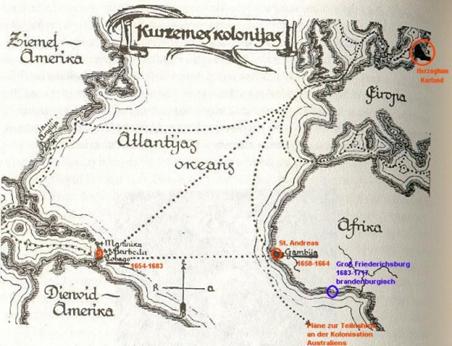 Kurzemes kolonijas
Ziemeļ-
Amerika
Herzogtum
Kurland
Eiropa
Atlantijas
okeans
Āfrika
St. Andreas
Gambija
Martinika
Barbeda
Tobago
1654-1683
Groß Friederichsburg
1683-1717
brandenburgisch
R
a
Dienvid-
Amerika
Pläne zur Teilnahme
an der Kolonisation
Australiens